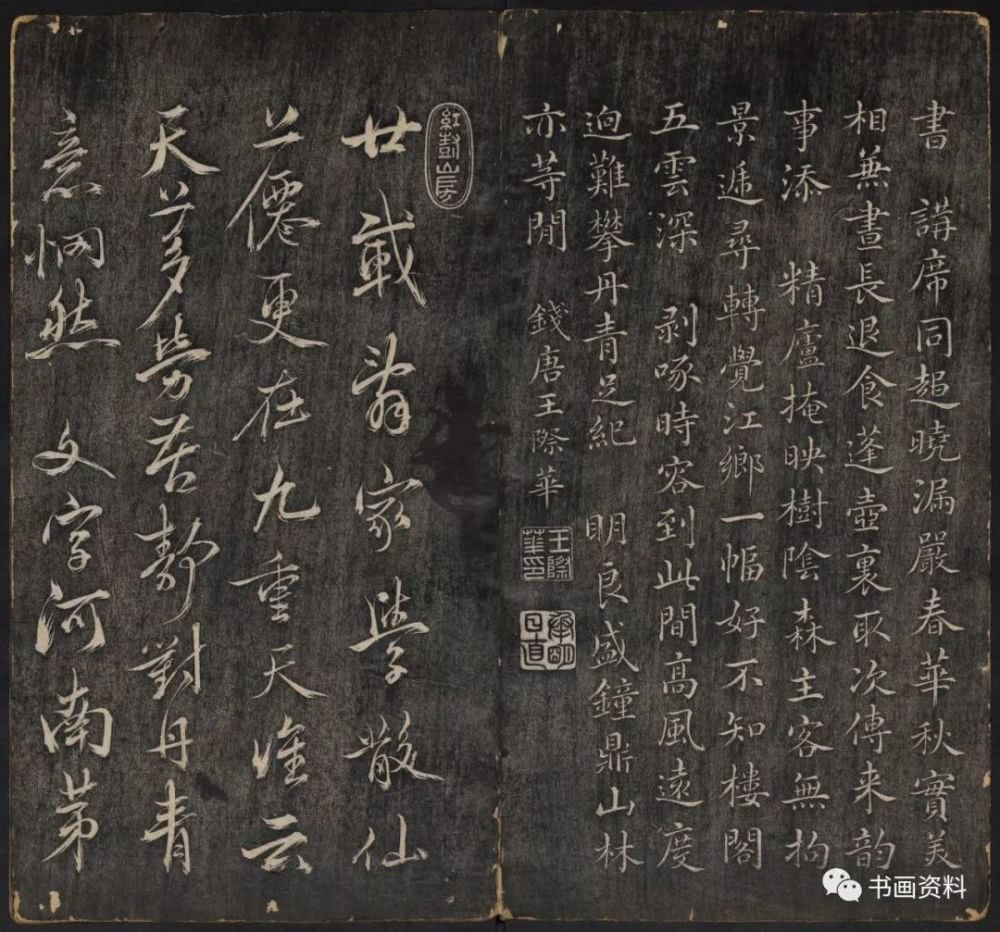 書 講席同趨曉漏嚴春華秋實美
相兼晝長退食蓬壺裏取次傳来韵
事添 精廬掩映樹陰森主客無拘
景遞尋轉覺江鄉一幅好不知樓閣
五雲深 剥啄時容到此間高風遠度
逈難攀丹青足紀 明良盛鐘鼎山林
亦等閒 錢唐王際華
王際華印
廿載家學散仙
上僊更在九重天誰云
天上多勞苦靜對丹青
意惘然 文字河南第
书画资料